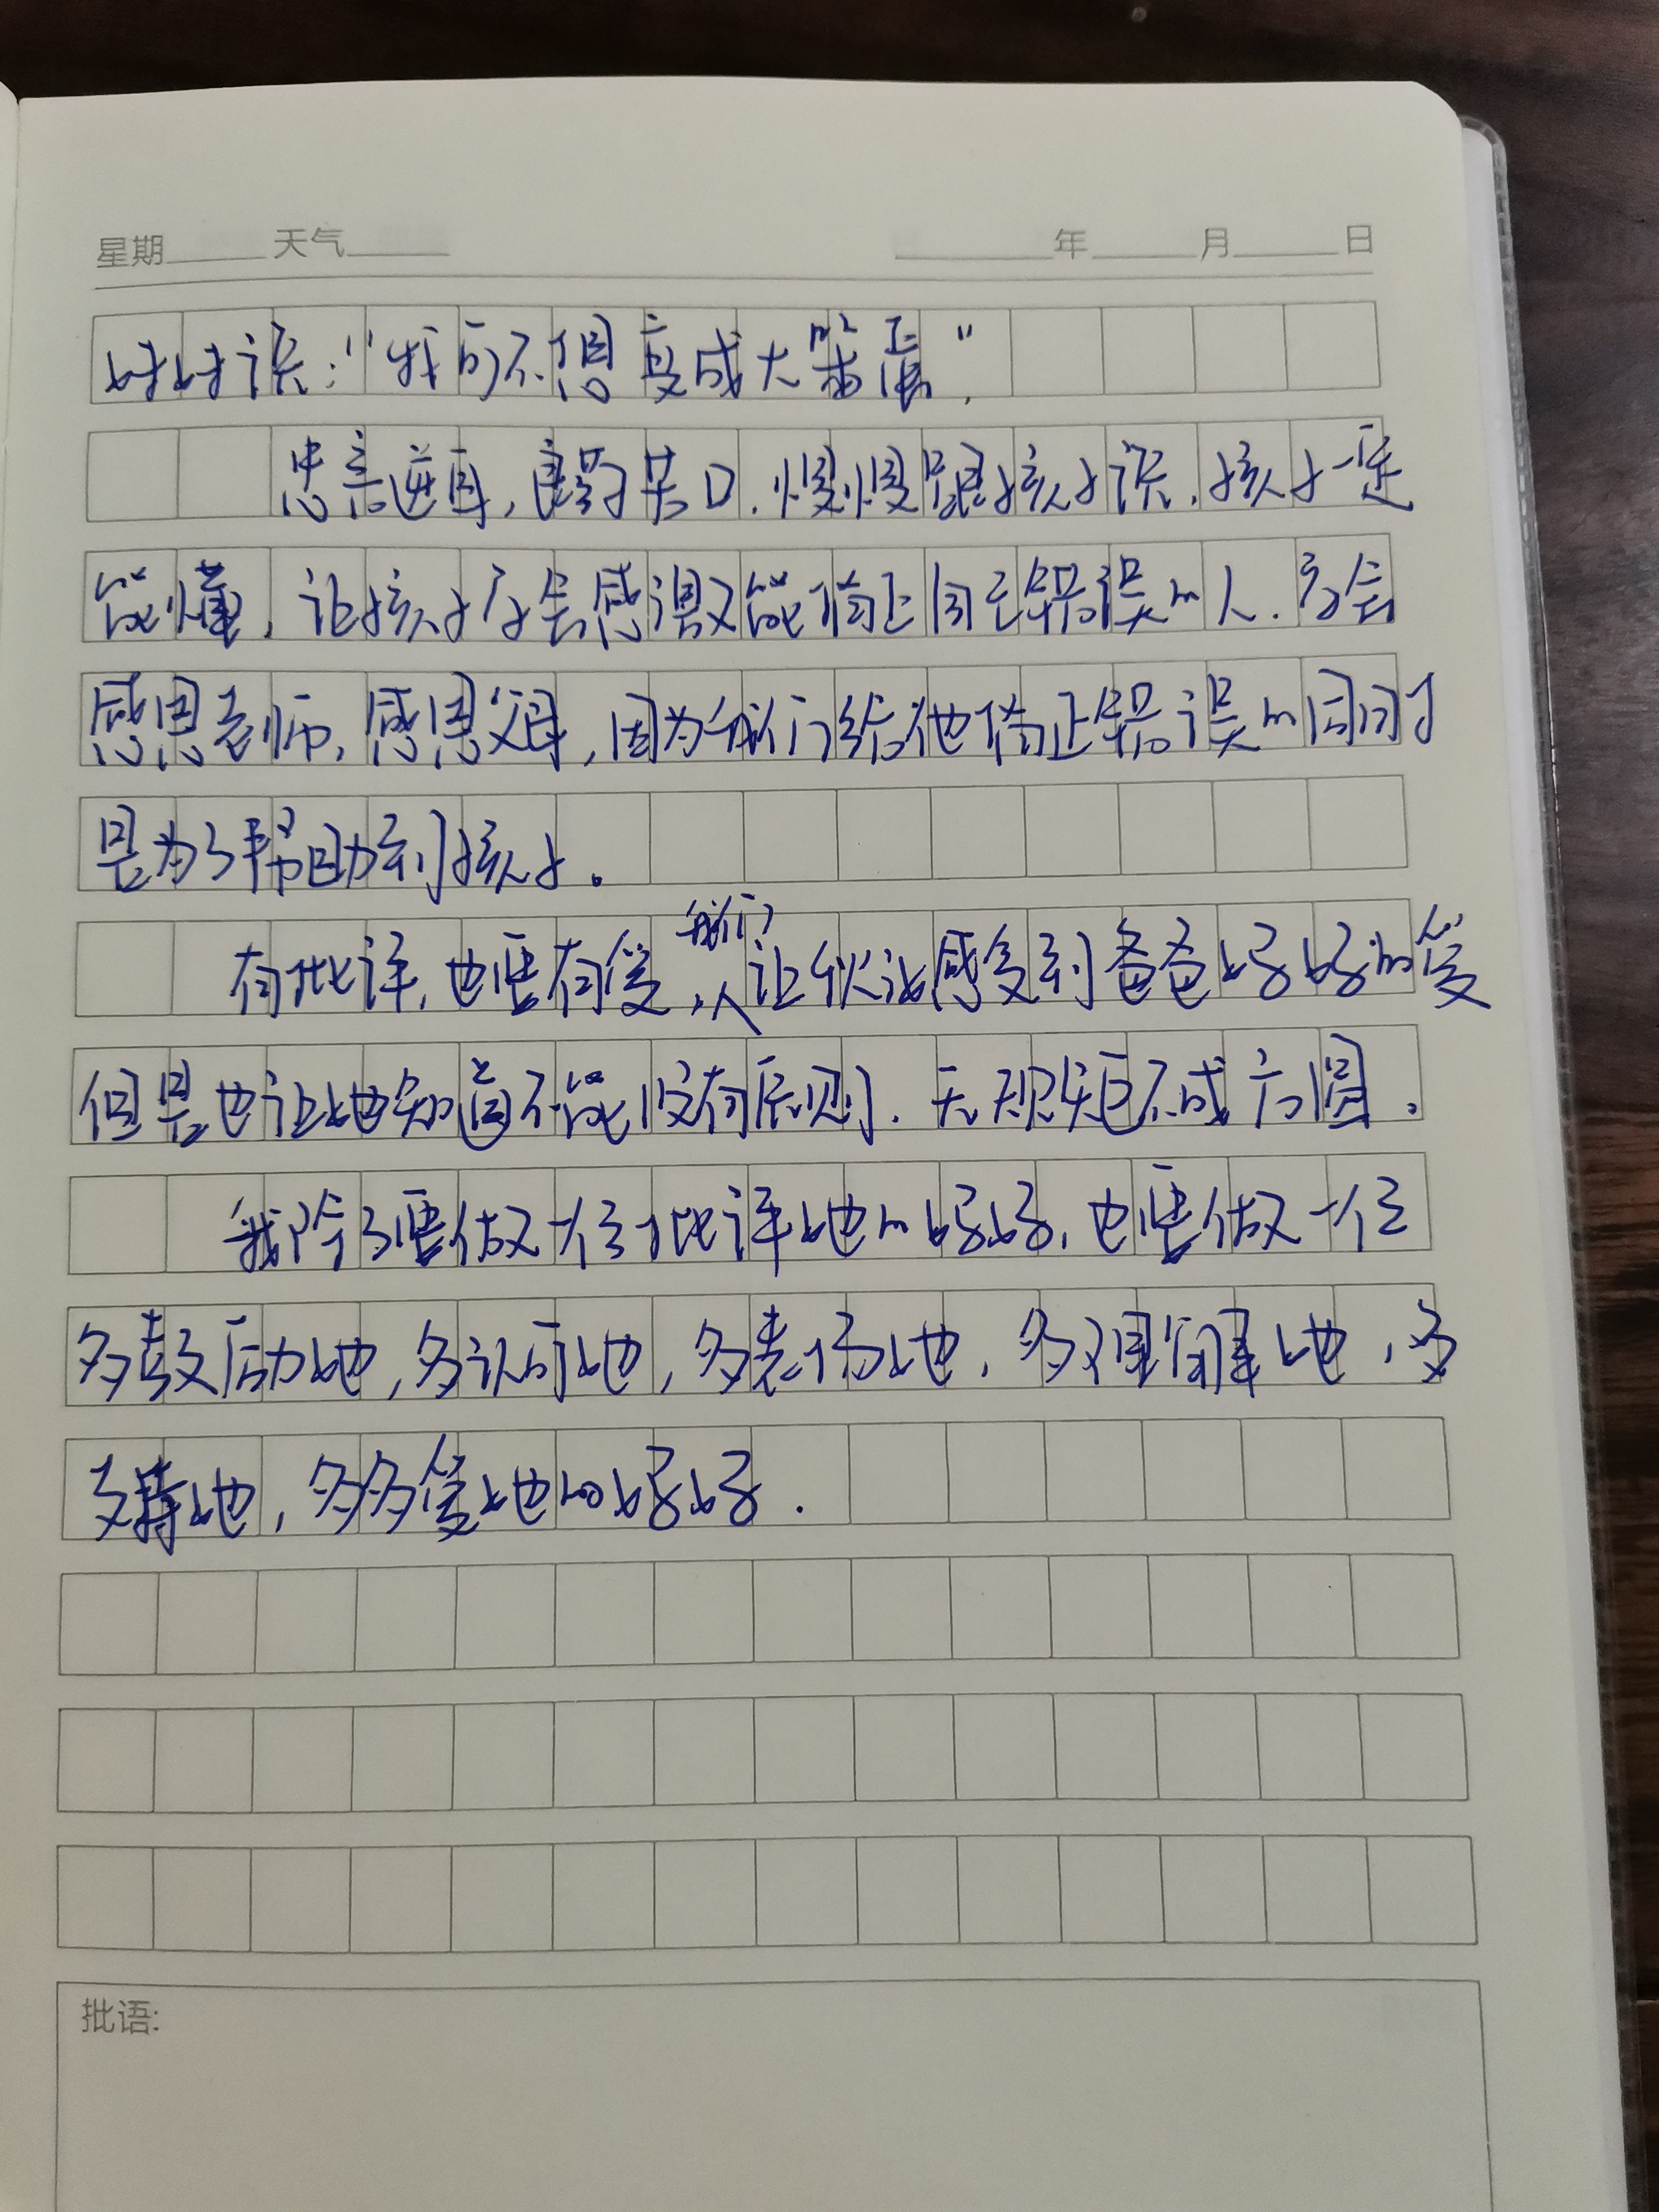 星期 天气 年 月 日
说："我可不想变成大笨蛋"。
忠言逆耳，良药苦口。慢慢跟孩子说，孩子一定
能懂，让孩子学会感谢又能指正自己错误的人。学会
感恩老师，感恩父母，因为我们给他指正错误的同时
是为了帮助到孩子。
有批评，也要有爱，我们让秋汝感受到爸爸妈妈的爱
但是也让她知道不能没有原则，无规矩不成方圆。
我除了要做一位批评她的妈妈，也要做一位
多鼓励她，多认可她，多表扬她，多理解她，多
支持她，多多爱她的妈妈。
批语: